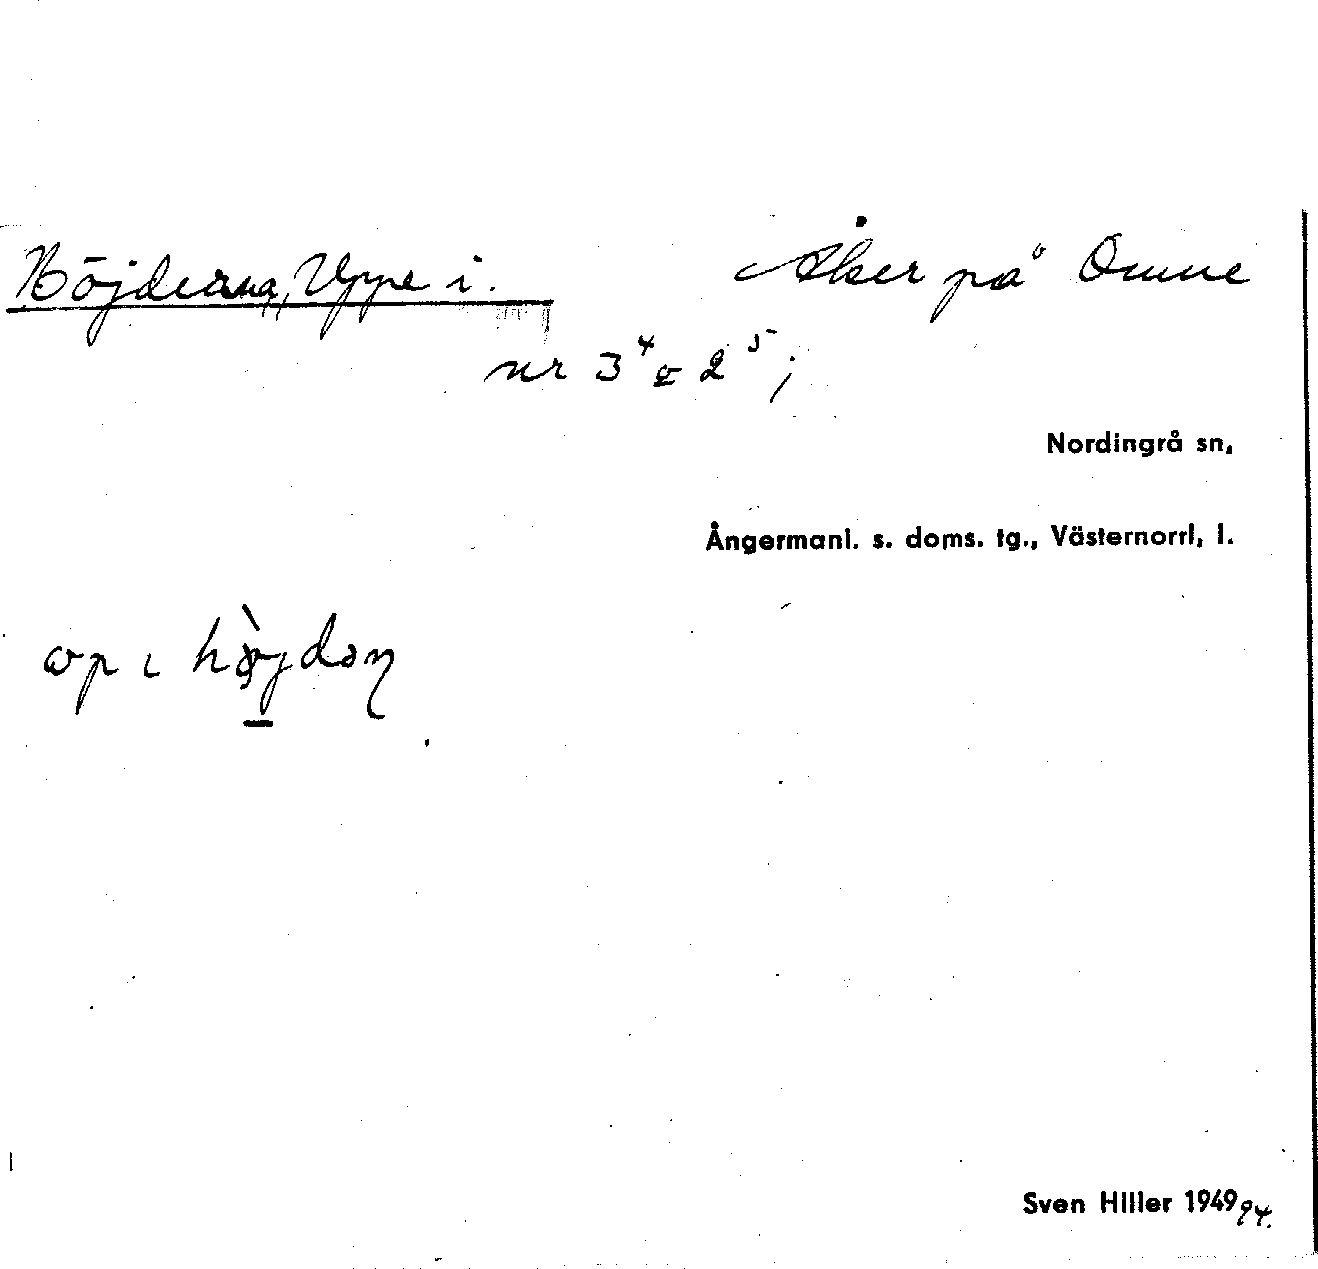 Höjderna, Uppe i. Åker på Omne
nr 3⁴ & 2⁵;
Nordingrå sn,
Ångermanl. s. doms. tg., Västernorrl, l.
Sven Hiller 1949